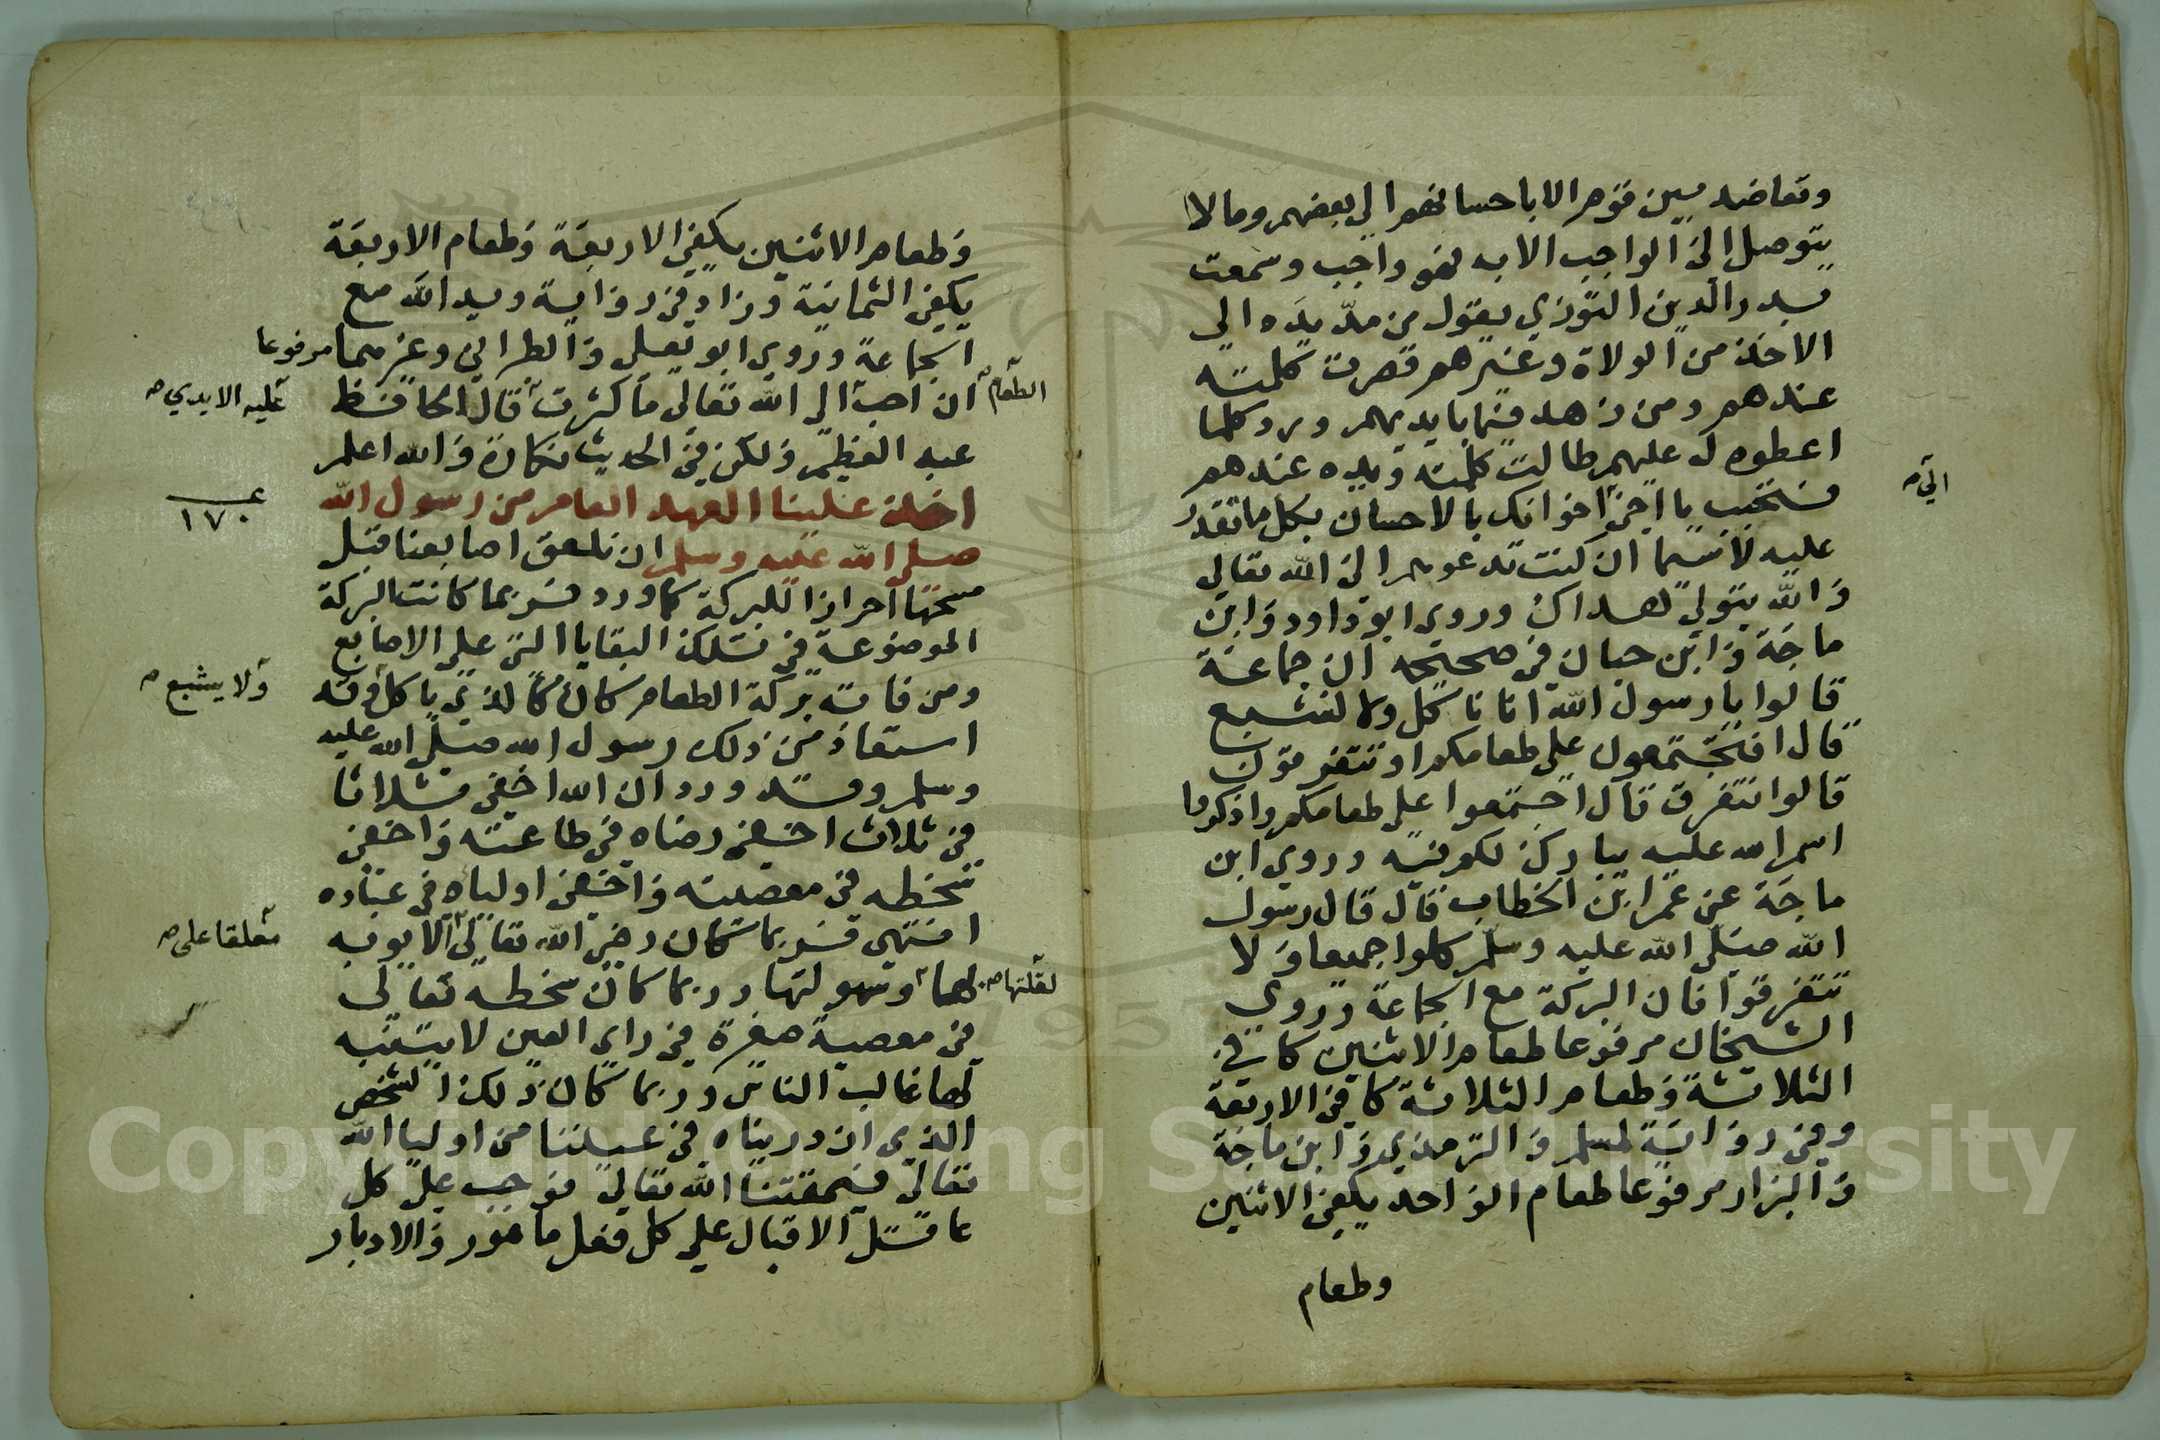 وتعاضد بين قوم الا باحسانهم الي بعضهم وما لا
يتوصل الي الواجب الا به فهو واجب وسمعت
بدر الدين التوزي يقول من مد يده الي
الاخذ من الولاة وغيرهم قصرت كلمته
عندهم ومن زهد فيما بايديهم ورد كلما
اعطوه له عليهم طالت كلمته ويده عندهم
فتحبب يا اخي اخوانك بالاحسان بكل ما تقدر
اليّ صـ
عليه لا سيما ان كنت تدعوهم الي الله تعالي
والله يتولي هداك وروي ابو داود وابن
ماجة وابن حبان في صحيحه ان جماعة
قالوا يا رسول الله انا ناكل ولا نشبع
قال افتجتمعون علي طعامكم او تتفرقون
قالوا نتفرق قال اجتمعوا علي طعامكم واذكروا
اسم الله عليه يبارك لكم فيه وروي ابن
ماجة عن عمر ابن الخطاب قال قال رسول
الله صلي الله عليه وسلم كلوا جميعا ولا
تتفرقوا فان البركة مع الجماعة وروي
الشيخان مرفوعا طعام الاثنين كافي
الثلاثة وطعام الثلاثة كافي الاربعة
وفي رواية لمسلم والترمذي وابن ماجة
والبزار مرفوعا طعام الواحد يكفي الاثنين
وطعام
وطعام الاثنين يكفي الاربعة وطعام الاربعة
يكفي الثمانية وزاد في رواية ويد الله مع
الجماعة وروي ابو يعلي والطبراني وغيرهما مرفوعا
ان احب الي الله تعالي ما كثرت قال الحافظ
الطعام صـ
عليه الايدي صـ
عبد العظيم ولكن في الحديث نكارة والله اعلم
اخذ علينا العهد العام من رسول الله
١٧٠
صلي الله عليه وسلم ان نلعق اصابعنا قبل
مسحها احرازا للبركة كما ورد فربما كانت البركة
الموضوعة في تلك البقايا التي علي الاصابع
ومن فاته بركة الطعام كان كالذي ياكل وقد
ولا يشبع صـ
استعاذ من ذلك رسول الله صلي الله عليه
وسلم وقد ورد ان الله اخفي ثلاثا
في ثلاث اخفي رضاه في طاعته واخفي
سخطه في معصيته واخفي اولياه في عباده
انتهي فربما كان رضي الله تعالي الا يوبه
معلقا علي صـ
لها وسهولتها وربما كان سخطه تعالي
لقلتها صـ
في معصية صغيرة في راي العين لا يتنبه
لها غالب الناس وربما كان ذلك الشخص
الذي ازدريناه في عيننا من اوليا الله
تعالي فيمقتنا الله تعالي فوجب علي كل
عاقل الاقبال علي كل فعل مامور والادبار